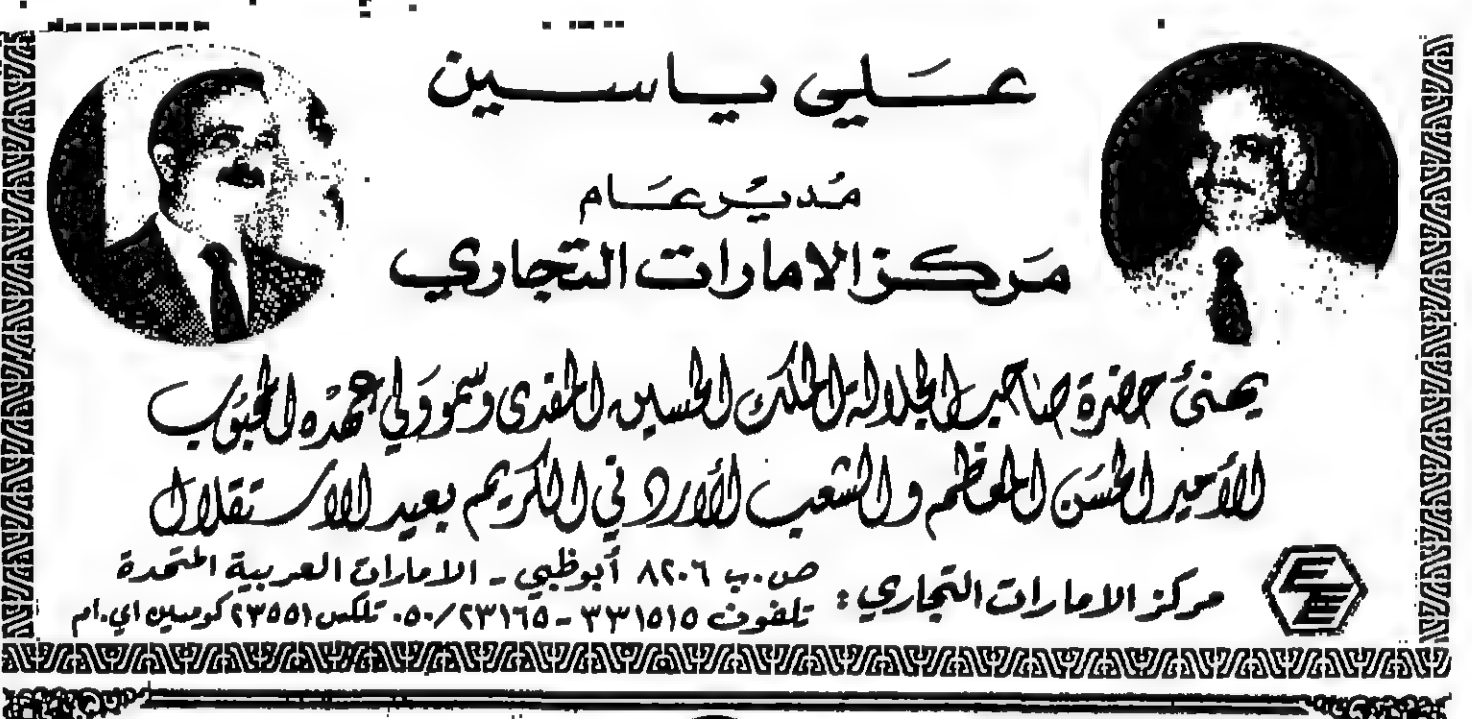 علي ياسين
مدير عام
مركز الامارات التجاري
يهنئ حضرة صاحب الجلالة الملك الحسين المفدى وسمو ولي عهده المحبوب
الأمير الحسن المعظم والشعب الأردني الكريم بعيد الاستقلال
مركز الامارات التجاري :
ص.ب ٨٢٠٦ أبوظبي - الامارات العربية المتحدة
تلفون ٣٣١٥١٥ - ٠٥٠/٢٣١٦٥ تلكس ٢٣٥٥١ كوسين اي.ام